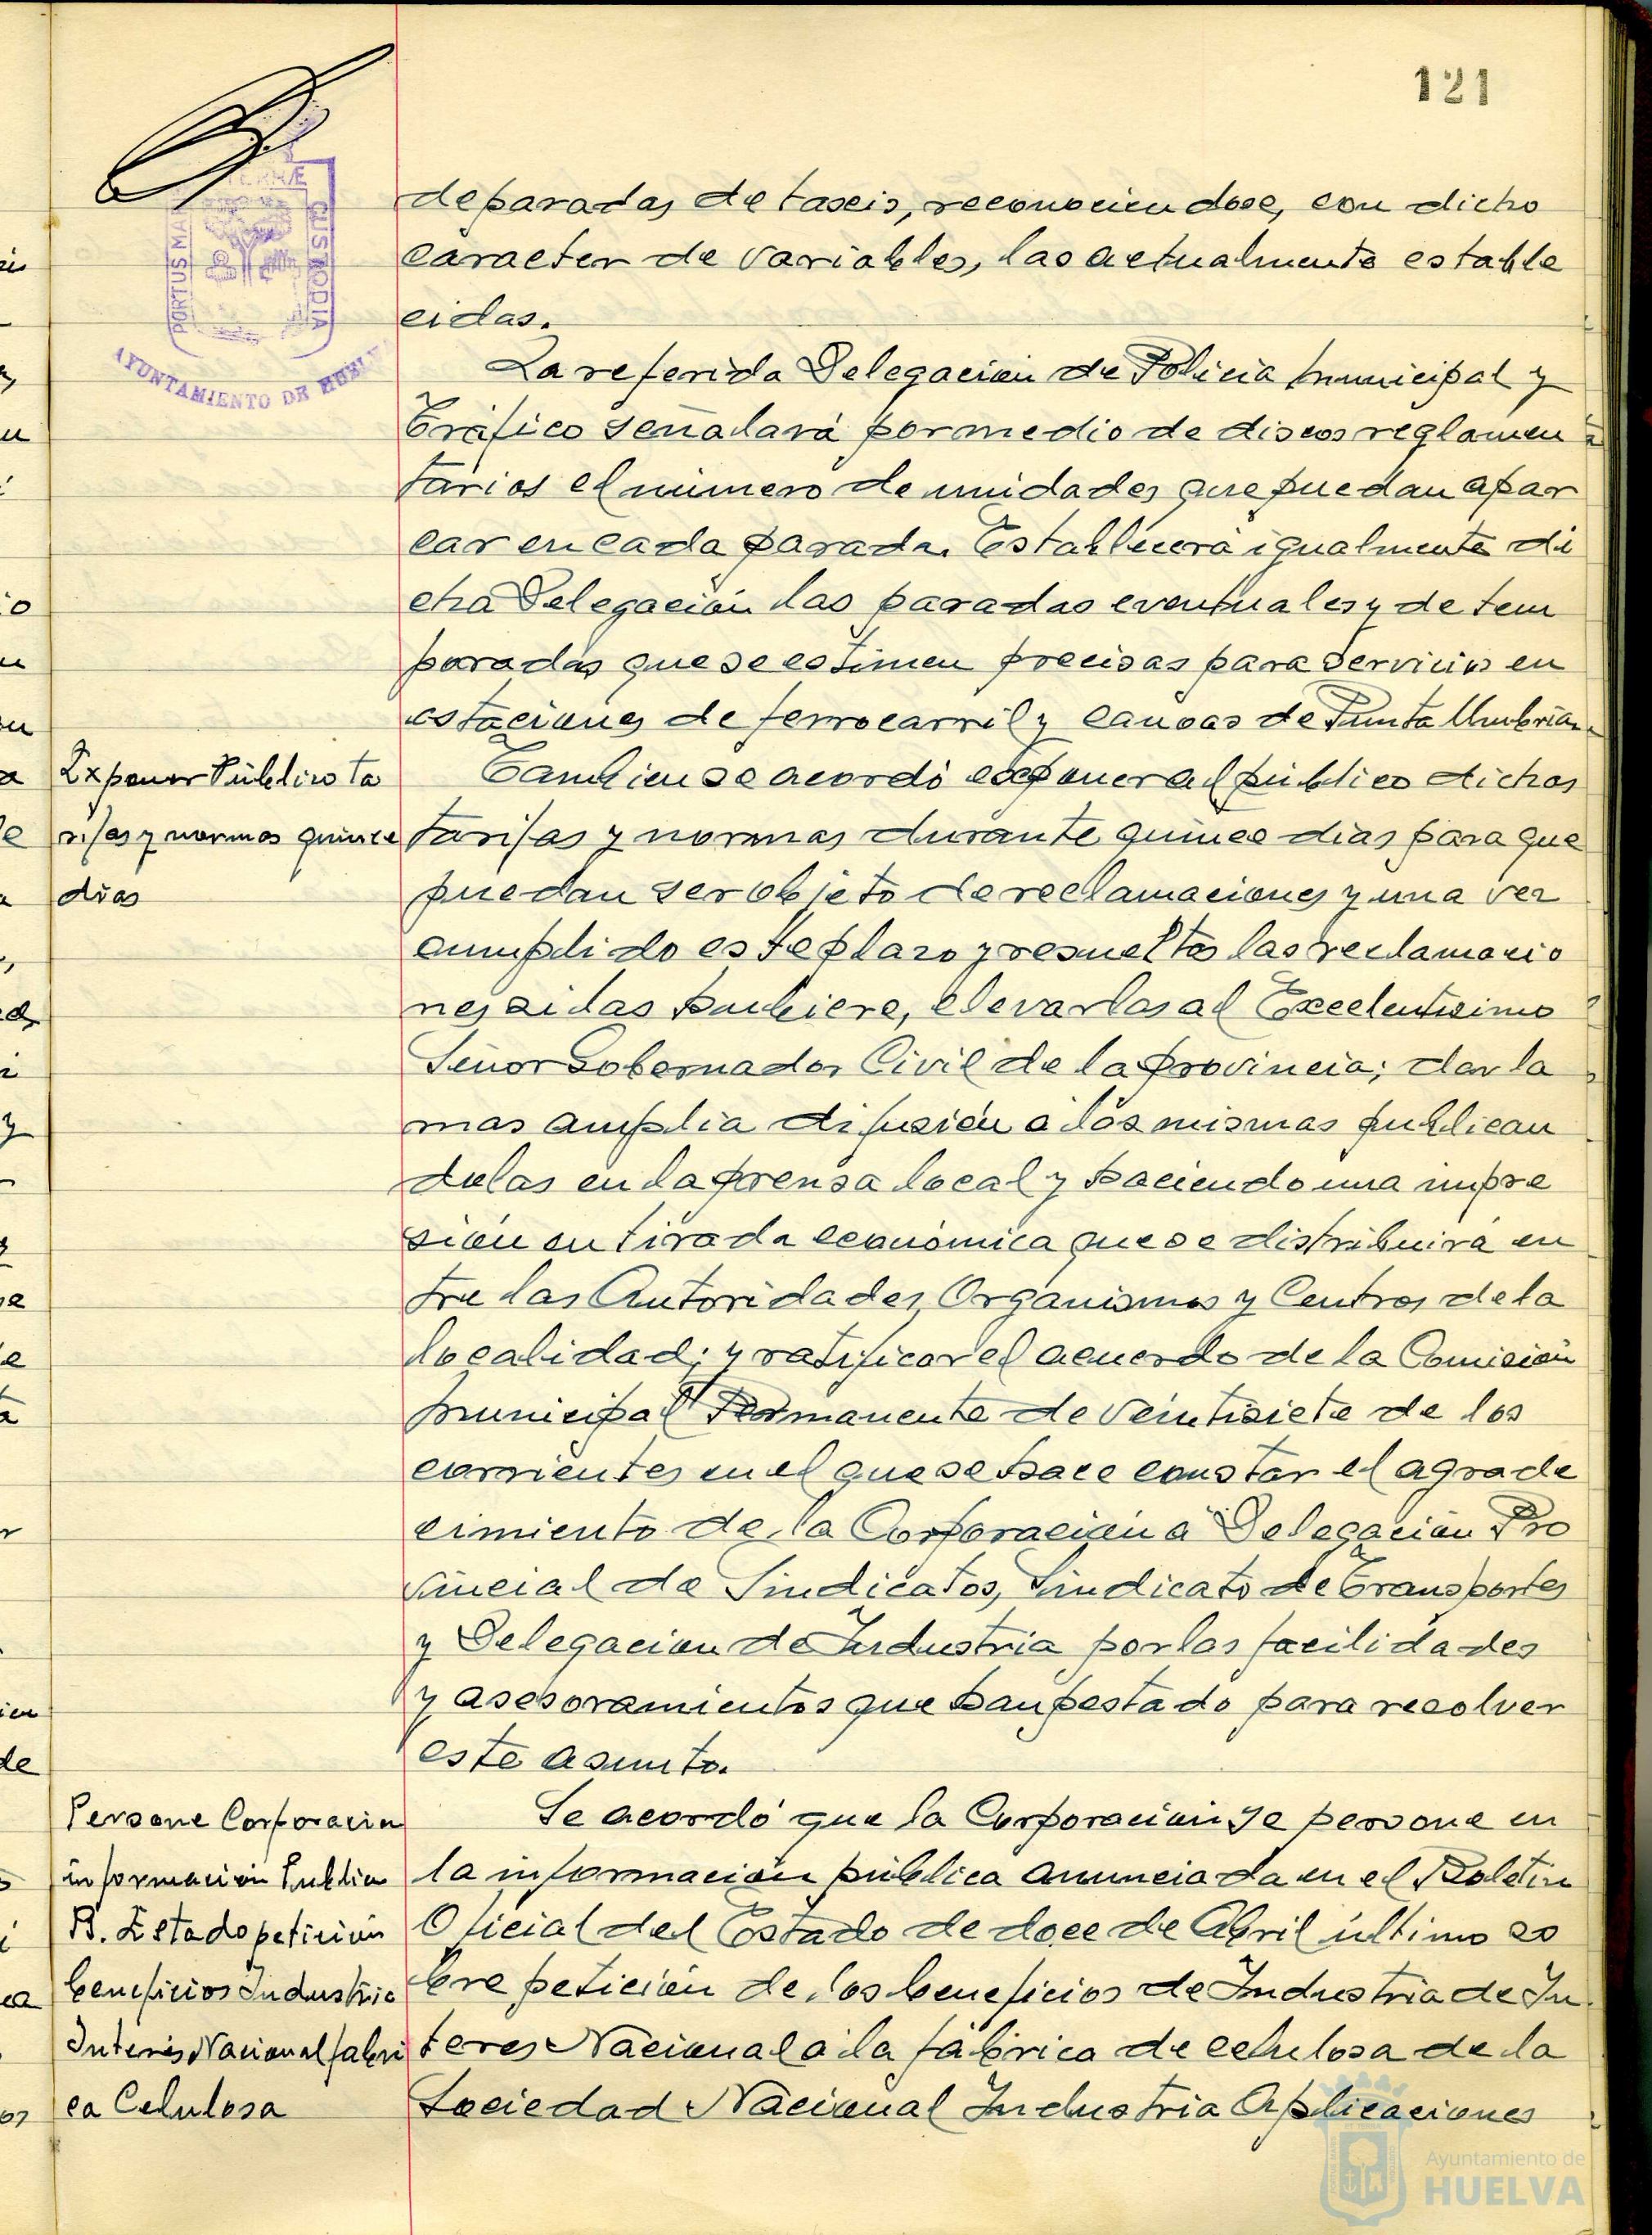 121
PORTUS MARIS ET TERRÆ CUSTODIA
AYUNTAMIENTO DE HUELVA
de paradas de taxis, reconociendose, con dicho
caracter de variables, las actualmente estable
cidas.
La referida Delegación de Policia Municipal y
Tráfico señalará por medio de discos reglamen
tarios el número de unidades que puedan apar
car en cada parada. Establecerá igualmente di
cha Delegación las paradas eventuales y de tem
poradas que se estimen precisas para servicio en
estaciones de ferrocarril y canoas de Punta Umbría.
Exponer Público ta
rifas y normas quince
dias
Tambien se acordó exponer al público dichas
tarifas y normas durante quince dias para que
puedan ser objeto de reclamaciones y una vez
cumplido este plazo y resueltas las reclamacio
nes si las hubiere, elevarlas al Excelentisimo
Señor Gobernador Civil de la provincia; dar la
mas amplia difusión a las mismas publican
dolas en la prensa local y haciendo una impre
sión en tirada económica que se distribuirá en
tre las Autoridades, Organismos y Centros de la
localidad; y ratificar el acuerdo de la Comisión
Municipal Permanente de veintisiete de los
corrientes en el que se hace constar el agrade
cimiento de la Corporacion a Delegación Pro
vincial de Sindicatos, Sindicato de Transportes
y Delegacion de Industria por las facilidades
y asesoramientos que han pestado para resolver
este asunto.
Persone Corporacion
información Publica
B. Estado petición
beneficios Industria
Interés Nacional fabri
ca Celulosa
Se acordó que la Corporacion se persone en
la información pública anunciada en el Boletin
Oficial del Estado de doce de Abril último so
bre petición de los beneficios de Industria de In
teres Nacional a la fábrica de celulosa de la
Sociedad Nacional Industria Aplicaciones
Ayuntamiento de
HUELVA